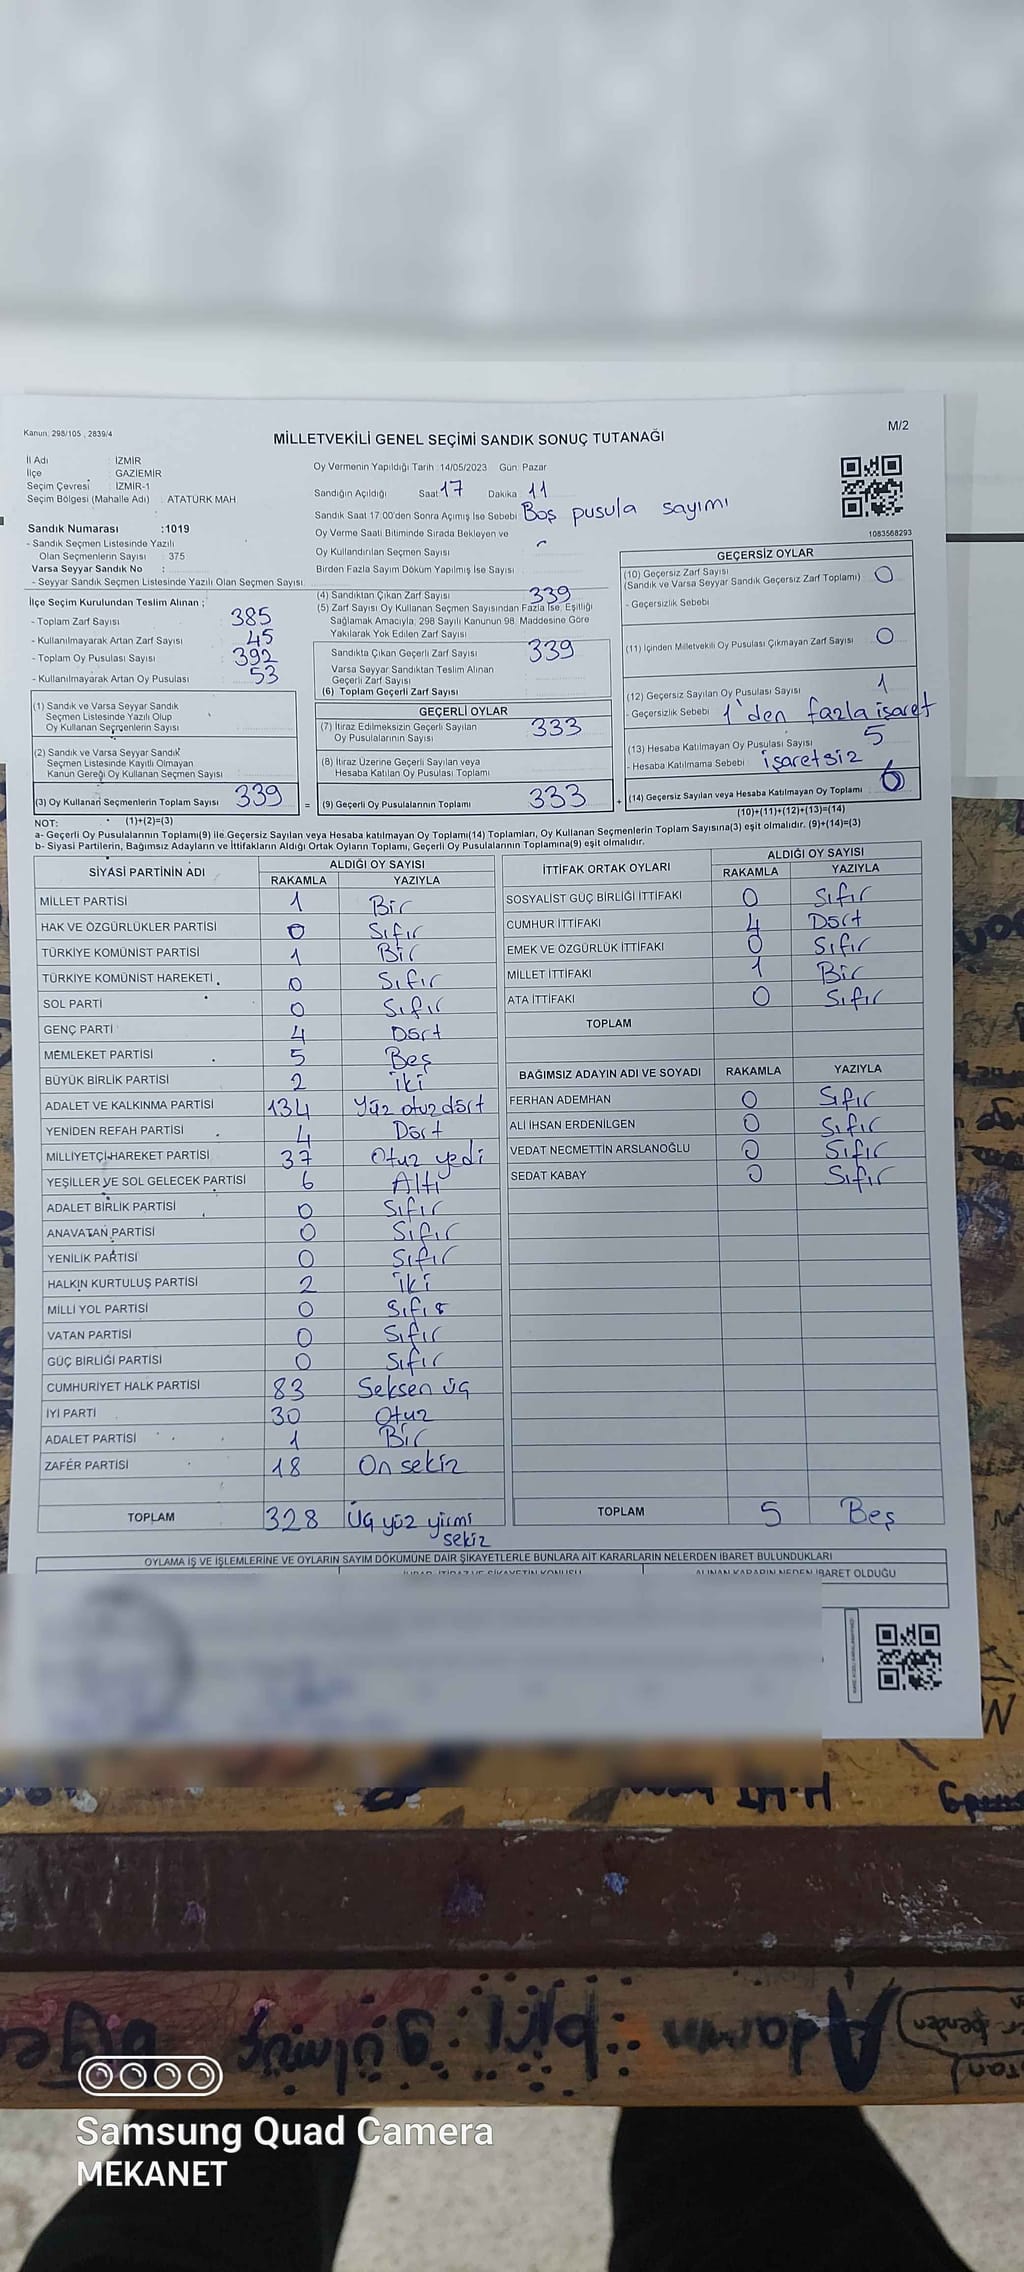 Kanun: 298/105 , 2839/4
MİLLETVEKİLİ GENEL SEÇİMİ SANDIK SONUÇ TUTANAĞI
M/2
İl Adı : İZMİR
İlçe : GAZİEMİR
Seçim Çevresi : İZMİR-1
Seçim Bölgesi (Mahalle Adı) : ATATÜRK MAH
Sandık Numarası :1019
- Sandık Seçmen Listesinde Yazılı
Olan Seçmenlerin Sayısı : 375
Varsa Seyyar Sandık No :
- Seyyar Sandık Seçmen Listesinde Yazılı Olan Seçmen Sayısı
Oy Vermenin Yapıldığı Tarih :14/05/2023 Gün: Pazar
Sandığın Açıldığı Saat 17 Dakika 11
Sandık Saat 17.00'den Sonra Açımış İse Sebebi Boş pusula sayımı
Oy Verme Saati Bitiminde Sırada Bekleyen ve
Oy Kullandırılan Seçmen Sayısı
Birden Fazla Sayım Döküm Yapılmış İse Sayısı
1083568293
İlçe Seçim Kurulundan Teslim Alınan ;
- Toplam Zarf Sayısı 385
- Kullanılmayarak Artan Zarf Sayısı 45
- Toplam Oy Pusulası Sayısı 392
- Kullanılmayarak Artan Oy Pusulası 53
(1) Sandık ve Varsa Seyyar Sandık
Seçmen Listesinde Yazılı Olup
Oy Kullanan Seçmenlerin Sayısı
(2) Sandık ve Varsa Seyyar Sandık
Seçmen Listesinde Kayıtlı Olmayan
Kanun Gereği Oy Kullanan Seçmen Sayısı
(3) Oy Kullanan Seçmenlerin Toplam Sayısı 339 =
(4) Sandıktan Çıkan Zarf Sayısı 339
(5) Zarf Sayısı Oy Kullanan Seçmen Sayısından Fazla İse, Eşitliği
Sağlamak Amacıyla, 298 Sayılı Kanunun 98. Maddesine Göre
Yakılarak Yok Edilen Zarf Sayısı
Sandıkta Çıkan Geçerli Zarf Sayısı 339
Varsa Seyyar Sandıktan Teslim Alınan
Geçerli Zarf Sayısı
(6) Toplam Geçerli Zarf Sayısı
GEÇERLİ OYLAR
(7) İtiraz Edilmeksizin Geçerli Sayılan
Oy Pusulalarının Sayısı 333
(8) İtiraz Üzerine Geçerli Sayılan veya
Hesaba Katılan Oy Pusulası Toplamı
(9) Geçerli Oy Pusulalarının Toplamı 333 +
GEÇERSİZ OYLAR
(10) Geçersiz Zarf Sayısı
(Sandık ve Varsa Seyyar Sandık Geçersiz Zarf Toplamı) 0
- Geçersizlik Sebebi
(11) İçinden Milletvekili Oy Pusulası Çıkmayan Zarf Sayısı 0
(12) Geçersiz Sayılan Oy Pusulası Sayısı 1
- Geçersizlik Sebebi 1'den fazla işaret
(13) Hesaba Katılmayan Oy Pusulası Sayısı 5
- Hesaba Katılmama Sebebi işaretsiz
(14) Geçersiz Sayılan veya Hesaba Katılmayan Oy Toplamı 6
NOT: (1)+(2)=(3) (10)+(11)+(12)+(13)=(14)
a- Geçerli Oy Pusulalarının Toplamı(9) ile Geçersiz Sayılan veya Hesaba katılmayan Oy Toplamı(14) Toplamları, Oy Kullanan Seçmenlerin Toplam Sayısına(3) eşit olmalıdır. (9)+(14)=(3)
b- Siyasi Partilerin, Bağımsız Adayların ve İttifakların Aldığı Ortak Oyların Toplamı, Geçerli Oy Pusulalarının Toplamına(9) eşit olmalıdır.
SİYASİ PARTİNİN ADI ALDIĞI OY SAYISI
RAKAMLA YAZIYLA
MİLLET PARTİSİ 1 Bir
HAK VE ÖZGÜRLÜKLER PARTİSİ 0 Sıfır
TÜRKİYE KOMÜNİST PARTİSİ 1 Bir
TÜRKİYE KOMÜNİST HAREKETİ 0 Sıfır
SOL PARTİ 0 Sıfır
GENÇ PARTİ 4 Dört
MEMLEKET PARTİSİ 5 Beş
BÜYÜK BİRLİK PARTİSİ 2 iki
ADALET VE KALKINMA PARTİSİ 134 Yüz otuz dört
YENİDEN REFAH PARTİSİ 4 Dört
MİLLİYETÇİ HAREKET PARTİSİ 37 Otuz yedi
YEŞİLLER VE SOL GELECEK PARTİSİ 6 Altı
ADALET BİRLİK PARTİSİ 0 Sıfır
ANAVATAN PARTİSİ 0 Sıfır
YENİLİK PARTİSİ 0 Sıfır
HALKIN KURTULUŞ PARTİSİ 2 iki
MİLLİ YOL PARTİSİ 0 Sıfır
VATAN PARTİSİ 0 Sıfır
GÜÇ BİRLİĞİ PARTİSİ 0 Sıfır
CUMHURİYET HALK PARTİSİ 83 Seksen üç
İYİ PARTİ 30 Otuz
ADALET PARTİSİ 1 Bir
ZAFER PARTİSİ 18 On sekiz
TOPLAM 328 Üç yüz yirmi
sekiz
İTTİFAK ORTAK OYLARI ALDIĞI OY SAYISI
RAKAMLA YAZIYLA
SOSYALİST GÜÇ BİRLİĞİ İTTİFAKI 0 Sıfır
CUMHUR İTTİFAKI 4 Dört
EMEK VE ÖZGÜRLÜK İTTİFAKI 0 Sıfır
MİLLET İTTİFAKI 1 Bir
ATA İTTİFAKI 0 Sıfır
TOPLAM
BAĞIMSIZ ADAYIN ADI VE SOYADI RAKAMLA YAZIYLA
FERHAN ADEMHAN 0 Sıfır
ALİ İHSAN ERDENİLGEN 0 Sıfır
VEDAT NECMETTİN ARSLANOĞLU 0 Sıfır
SEDAT KABAY 0 Sıfır
TOPLAM 5 Beş
OYLAMA İŞ VE İŞLEMLERİNE VE OYLARIN SAYIM DÖKÜMÜNE DAİR ŞİKAYETLERLE BUNLARA AİT KARARLARIN NELERDEN İBARET BULUNDUKLARI
ALINAN KARARIN NEDEN İBARET OLDUĞU
Adamın biri gülmüş
Samsung Quad Camera
MEKANET